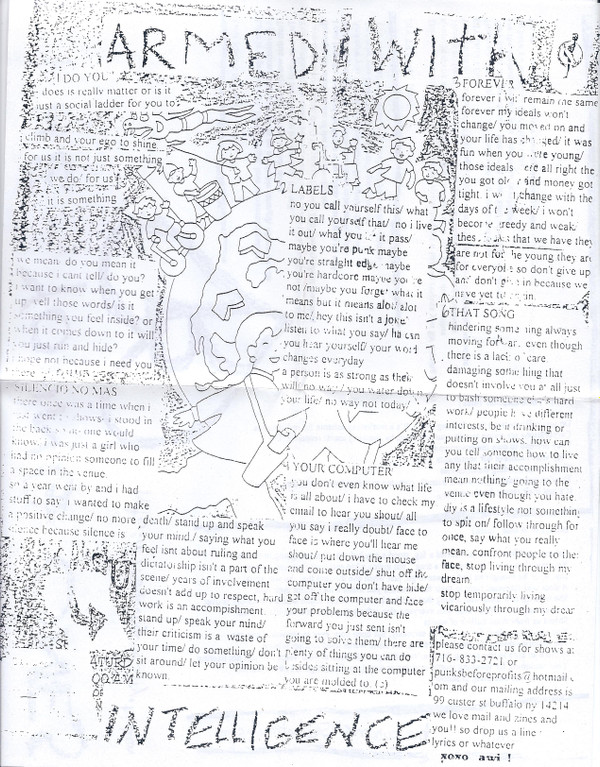 ARMED WITH
I DO YOU
does is really matter or is it
just a social ladder for you to
climb and your ego to shine
for us it is not just something
we do/ for us
it is something
we mean/ do you mean it
because i cant tell/ do you?
i want to know when you get
up yell those words/ is it
something you feel inside? or
when it comes down to it will
you just run and hide?
i hope not because i need you
SILENCIO NO MAS
there once was a time when i
just went shows/ i stood in
the back so no one would
know. i was just a girl who
had no opinion someone to fill
a space in the venue.
so a year went by and i had
stuff to say i wanted to make
a positive change/ no more
silence because silence is
death/ stand up and speak
your mind / saying what you
feel isnt about ruling and
dictatorship isn't a part of the
scene/ years of involvement
doesn't add up to respect, hard
work is an accomplishment
stand up/ speak your mind/
their criticism is a waste of
your time/ do something/ don't
sit around/ let your opinion be
known.
LABELS
no you call yourself this/ what
you call yourself that/ no i live
it out/ what you it pass/
maybe you're punk maybe
you're straight edge maybe
you're hardcore maybe you're
not /maybe you forget what it
means but it means alot/ alot
to me/ hey this isn't a joke
listen to what you say/ ha can
you hear yourself/ your word
changes everyday
a person is as strong as their
will/ no way / you water down
your life/ no way not today/
4 YOUR COMPUTER
you don't even know what life
is all about/ i have to check my
email to hear you shout/ all
you say i really doubt/ face to
face is where you'll hear me
shout/ put down the mouse
and come outside/ shut off the
computer you don't have hide/
get off the computer and face
your problems because the
forward you just sent isn't
going to solve them/ there are
plenty of things you can do
besides sitting at the computer
you are molded to (s)
5 FOREVER
forever i will remain the same
forever my ideals won't
change/ you moved on and
your life has changed/ it was
fun when you were young/
those ideals were all right the
you got old and money got
tight. i won't change with the
days of the week/ i won't
become greedy and weak/
these ideals that we have they
are not for the young they are
for everyone so don't give up
and don't give in because we
have yet to
6 THAT SONG
hindering something always
moving forward. even though
there is a lack of care
damaging something that
doesn't involve you at all just
to bash someone else's hard
work/ people have different
interests, be it drinking or
putting on shows. how can
you tell someone how to live
any that their accomplishment
mean nothing going to the
venue even though you hate.
diy is a lifestyle not something
to spit on/ follow through for
once, say what you really
mean. confront people to the
face, stop living through my
dream.
stop temporarily living
vicariously through my dream
please contact us for shows at
716- 833-2721 or
punksbeforeprofits@hotmail.c
om and our mailing address is
99 custer st buffalo ny 14214
we love mail and zines and
you!! so drop us a line
lyrics or whatever
xoxo awi !
INTELLIGENCE